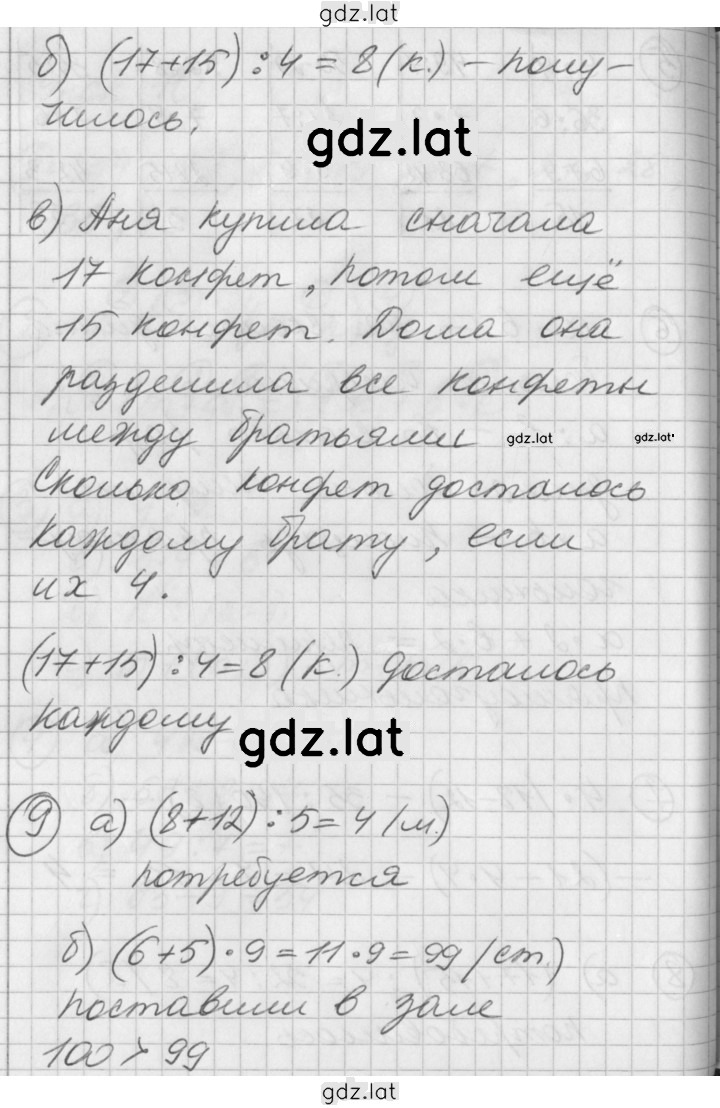 gdz.lat
б) (17+15) : 4 = 8 (к.) – полу–
чилось.
gdz.lat
в) Аня купила сначала
17 конфет, потом ещё
15 конфет. Дома она
разделила все конфеты
между братьями
gdz.lat
gdz.lat
Сколько конфет досталось
каждому брату, если
их 4.
(17+15) : 4 = 8 (к.) досталось
каждому
gdz.lat
9 а) (8+12) : 5 = 4 (м.)
потребуется
б) (6+5) · 9 = 11 · 9 = 99 (ст.)
поставили в зале
100 > 99
gdz.lat